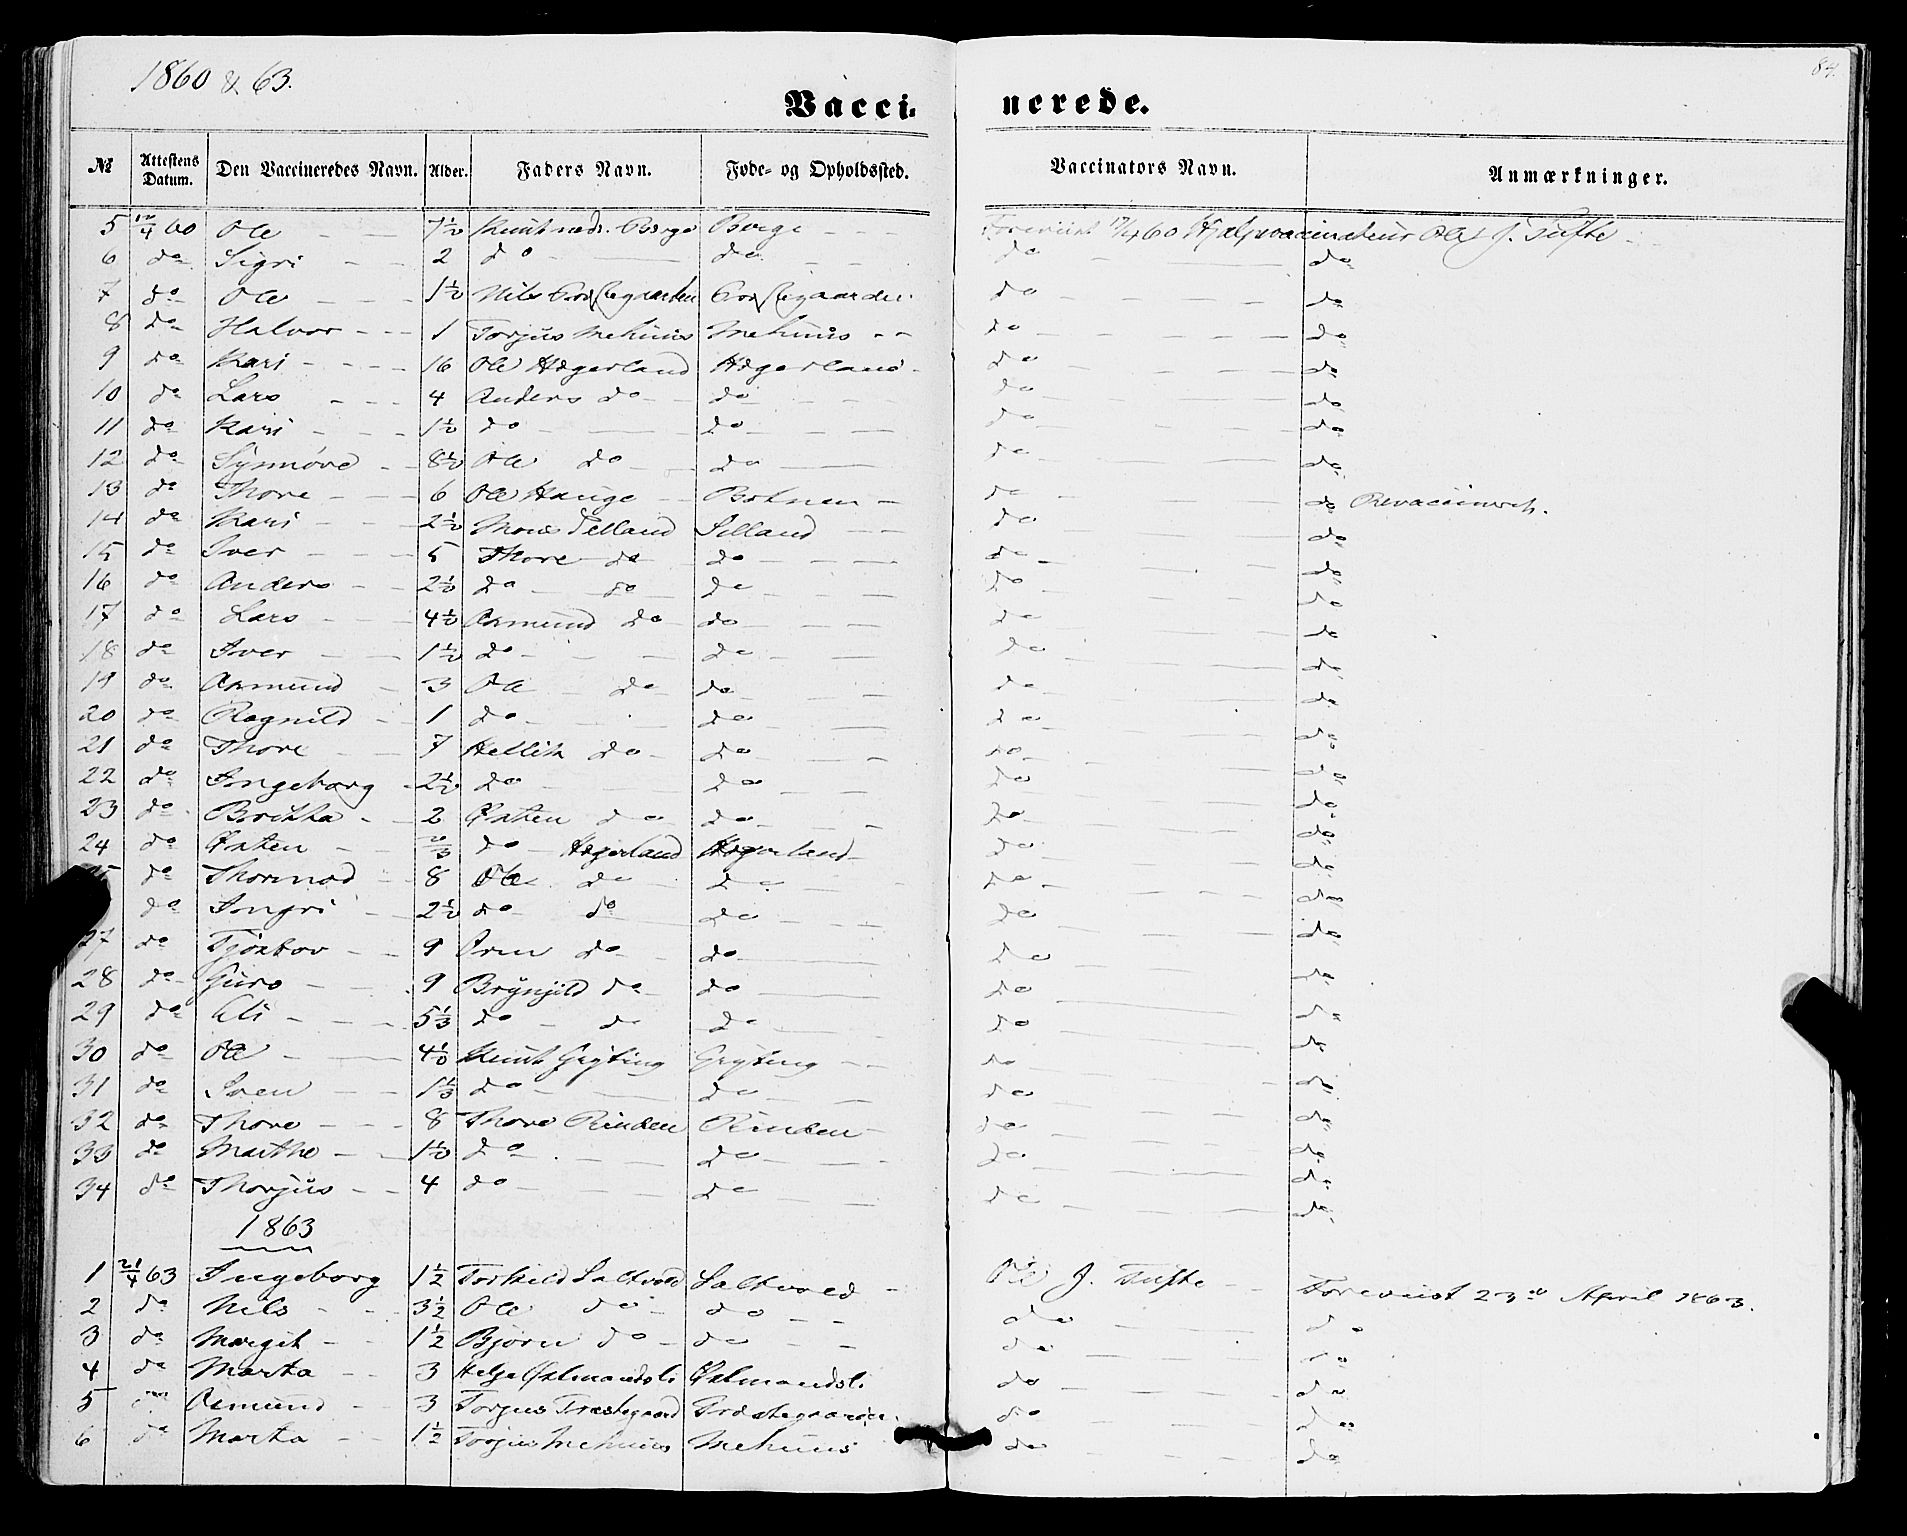 1860 & 63.
84.
Vaccinerede.
№ Attestens Datum. Den Vaccineredes Navn. Alder. Faders Navn. Føde- og Opholdssted. Vaccinators Navn. Anmærkninger.
5 12/4 60 Ole 7½ Knut Borge Forevist 17/4 60 Hjelpevaccinateur Ole J. Tufte
6 do Sigri 2 do do do do
7 do Ole 1½ Nils do do
8 do Halvor 1 Torjus Mehuus Mehuus do do
9 do Kari 16 Ole Hægerland Hægerland do do
10 do Lars 4 Anders do do do do
11 do Kari 1½ do do do do
12 do Synnøve 8½ Ole do do do do
13 do Thore 6 Ole Hauge do do
14 do Kari 2½ do do
15 do Iver 5 Thore do do do do
16 do Anders 2½ do do do do do
17 do Lars 4½ Asmund do do do do
18 do Iver 1½ do do do do
19 do Asmund 3 Ole do do do do
20 do Ragnild 1 do do do do
21 do Thore 7 Hellik do do do do
22 do Ingeborg 2½ do do do do
23 do Birittha 2 Østen do do do do
24 do Østen 2/3 do Hægerland Hægerland do do
do Thormod 8 Ole do do do do
do Ingri 2½ do do do do do
27 do Tjøstov 9 do do do do
28 do Guro 9 Brynjild do do do do
29 do 5⅓ do do do do do
30 do Ole 4½ Knut Gryting Gryting do do
31 do Sven 1⅓ do do do do
32 do Thore 8 Thore Rinden Rinden do do
33 do Marthe 1½ do do do do
34 do Thorjus 4 do do do do
1863
1 21/4 63 Ingeborg 1½ Torkild Saltvold Saltvold Ole J. Tufte Forevist 23de April 1863.
2 do Nils 3½ Ole do do do do
3 do Margit 1½ Bjørn do do do do
4 do Marta 3 Helge do do
5 do Asmund 3 Torjus Præstegaard do do
6 do Marta 1½ Torjus Mehuus Mehuus do do